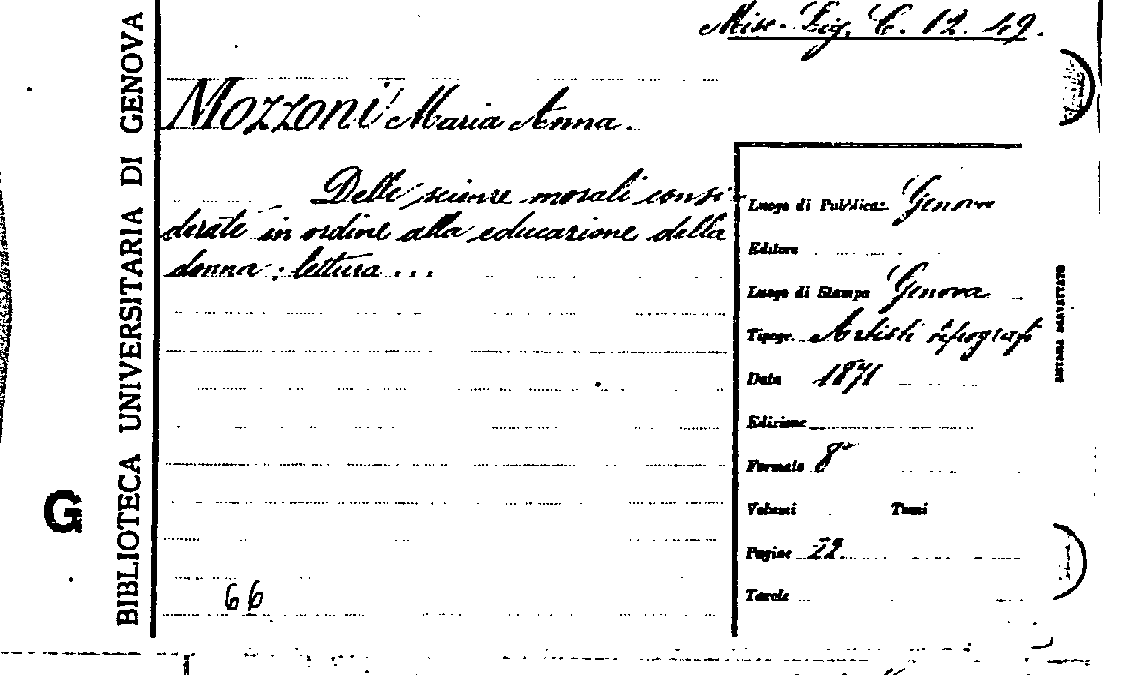 Misc. Lig. C. 12. 49.
BIBLIOTECA UNIVERSITARIA DI GENOVA
Mozzoni Maria Anna.
Delle scienze morali consi-
derate in ordine alla educazione della
donna : lettura ...
Luogo di Pubblicaz. Genova
Editore
Luogo di Stampa Genova
Tipogr. Artisti tipografi
Data 1871
Edizione
Formato 8°
Volumi Tomi
Pagine 22.
Tavole
G
66